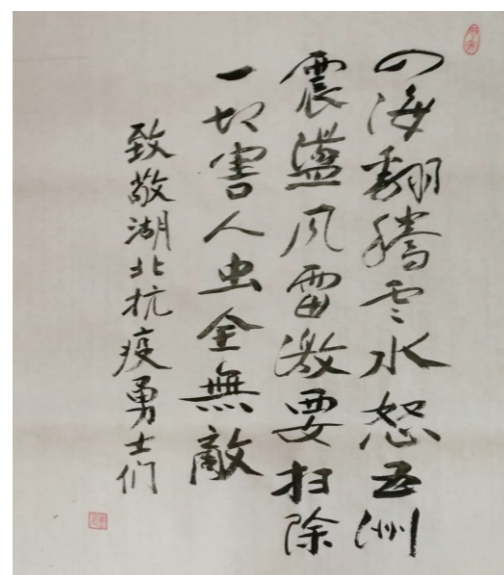 四海翻腾云水怒五洲
震盪风雷激要扫除
一切害人虫全無敵
致敬湖北抗疫勇士们